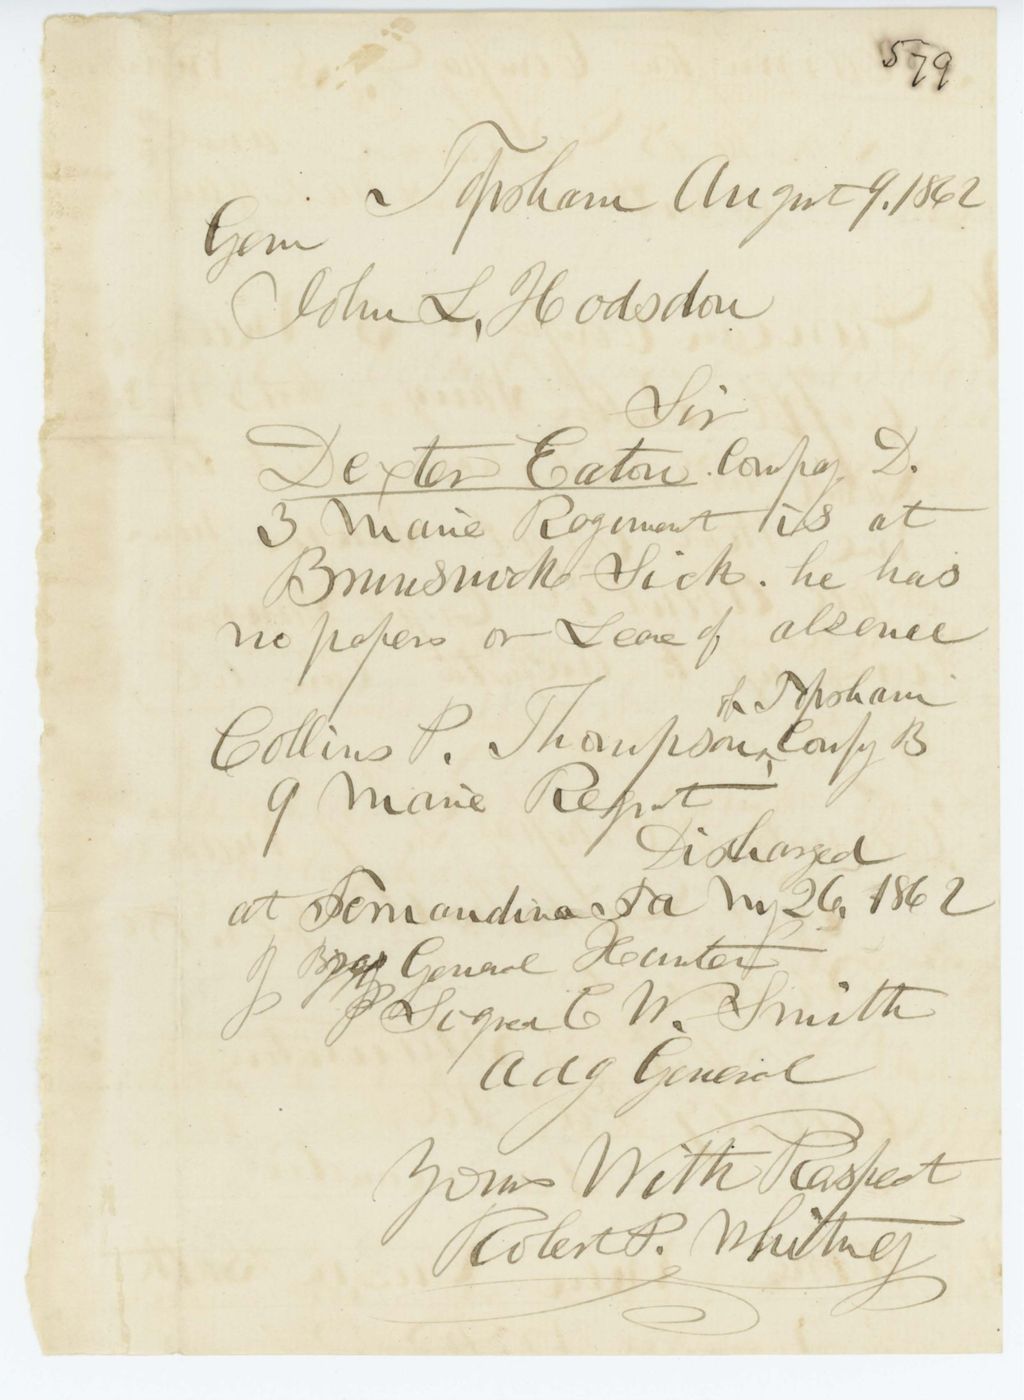 579
Topsham August 9. 1862
Genn
John L. Hodsdon
Sir
Dexter Eaton Compy D.
3 Maine Regiment is at
Brunswick Sick. he has
no papers or Leave of absence
of Topsham
Collins P. Thompson, Compy B
9 Maine Regmt
Discharged
at Fernandina Fa My 26, 1862
General Hunter
Signed C W. Smith
Adg General
Yours With Raspect
Robert P. Whitney